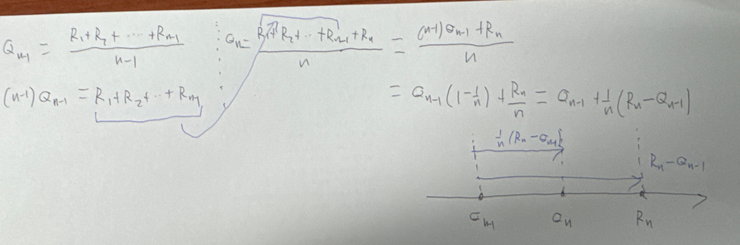 Q_{n-1} = \frac{R_1 + R_2 + \cdots + R_{n-1}}{n-1}
(n-1) Q_{n-1} = R_1 + R_2 + \cdots + R_{n-1}
Q_n = \frac{R_1 + R_2 + \cdots + R_{n-1} + R_n}{n} = \frac{(n-1) Q_{n-1} + R_n}{n}
= Q_{n-1} (1 - \frac{1}{n}) + \frac{R_n}{n} = Q_{n-1} + \frac{1}{n} (R_n - Q_{n-1})
\frac{1}{n} (R_n - Q_{n-1})
R_n - Q_{n-1}
Q_{n-1} Q_n R_n